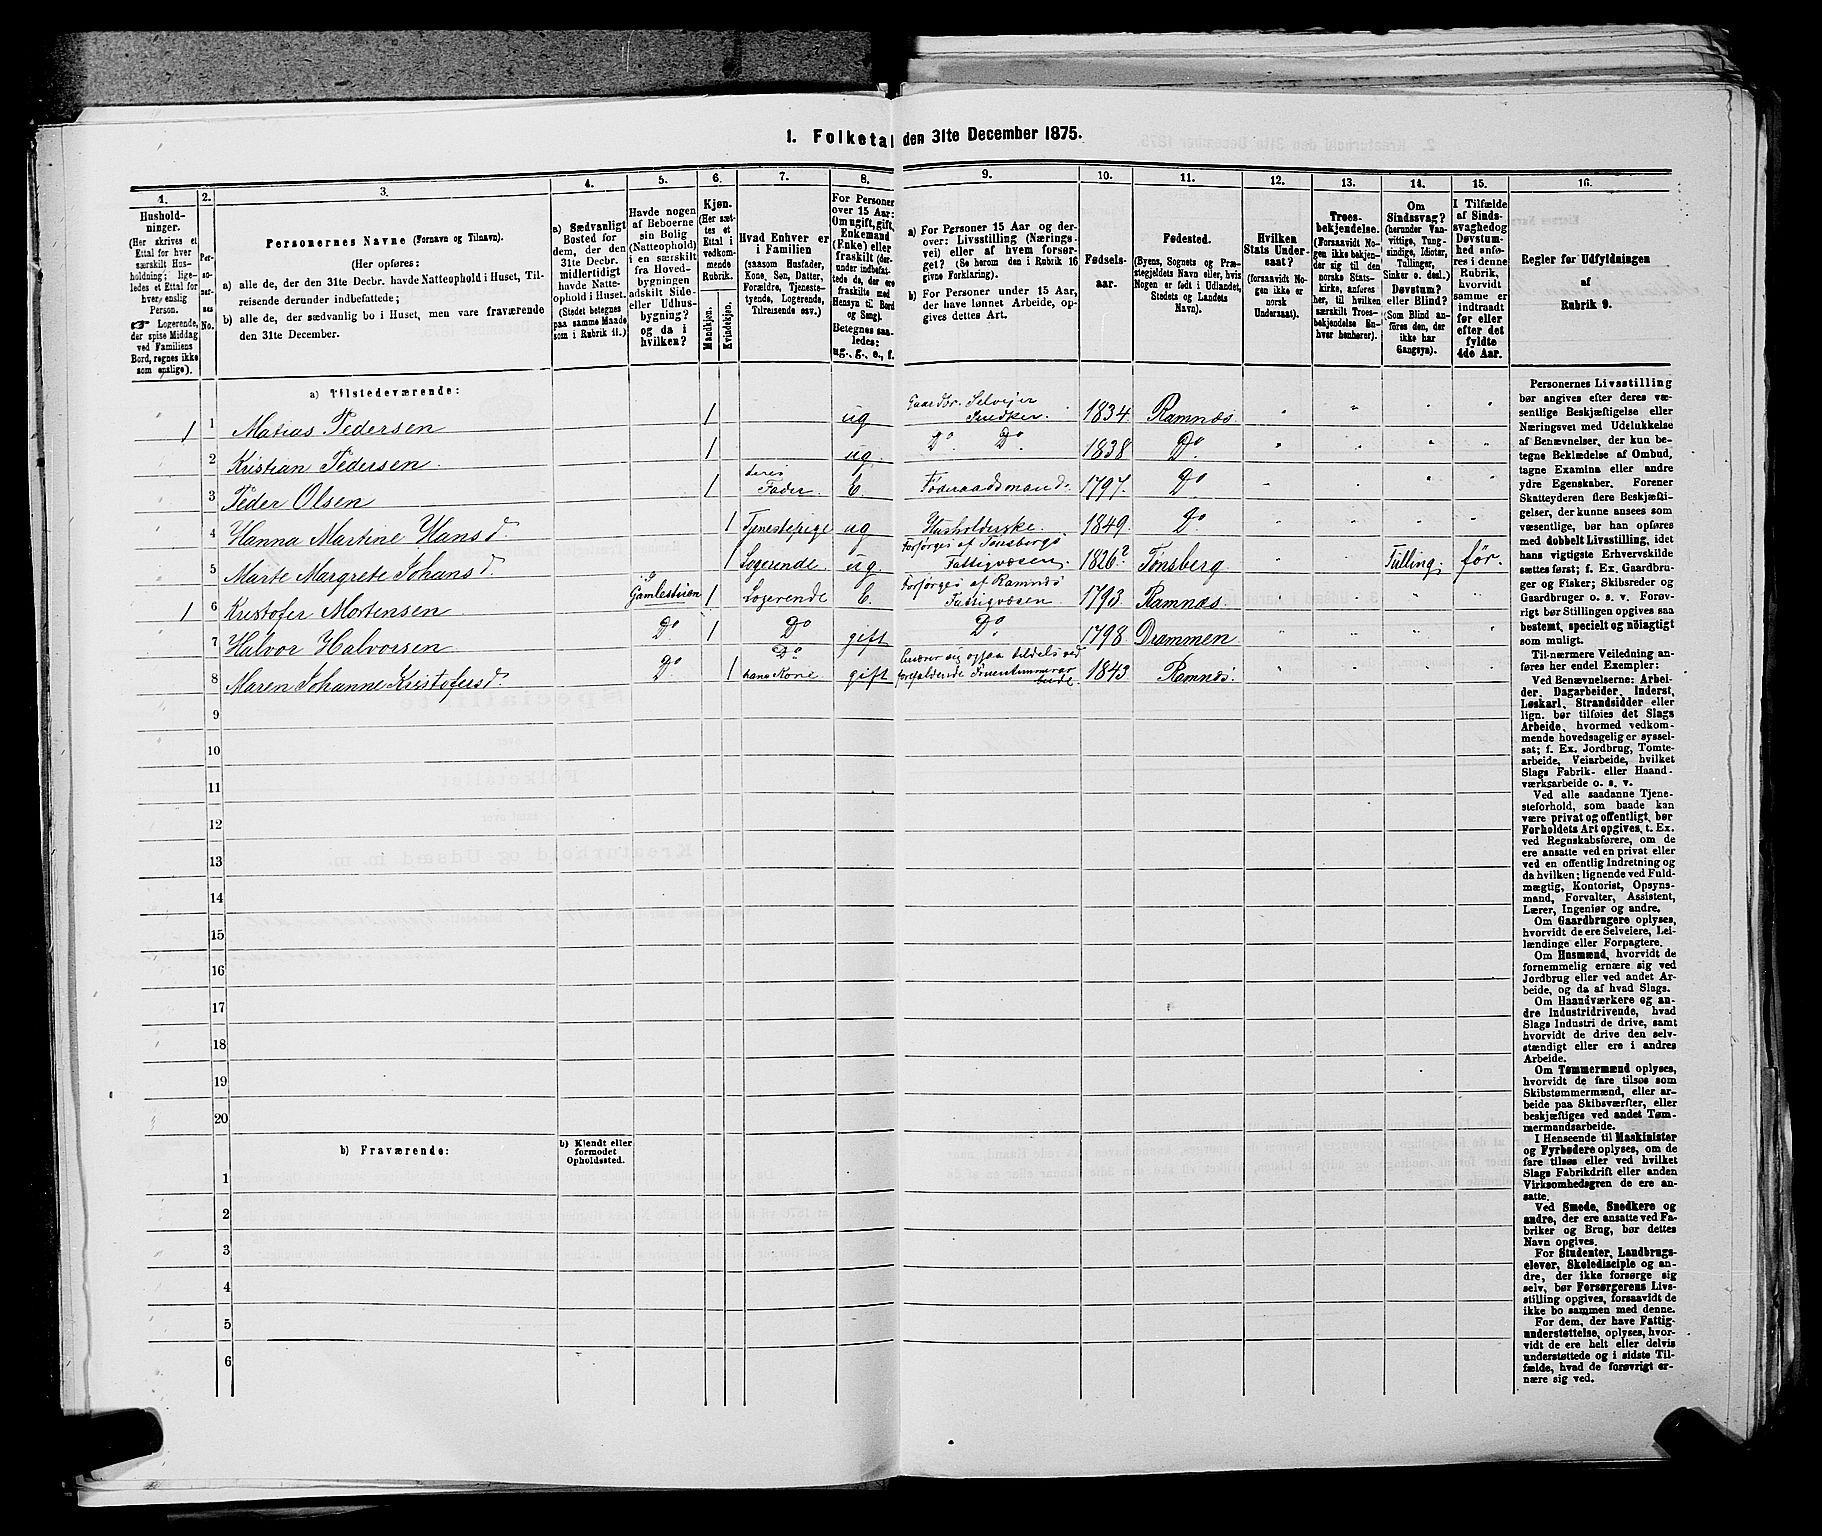 1. Folketal den 31te December 1875.
1.
2.
3.
4.
5.
6.
7.
8.
9.
10.
11.
12.
13.
14.
15.
16.
Hushold-
ninger.
(Her skrives et
Ettal for hver
særskilt Hus-
holdning; lige-
ledes et Ettal for
hver enslig
Person.
Logerende,
der spise Middag
ved Familiens
Bord, regnes ikke
som enslige).
Per-
so-
ner-
nes
No.
Personernes Navne (Fornavn og Tilnavn).
(Her opføres:
a) alle de, der den 31te Decbr. havde Natteophold i Huset, Til-
reisende derunder indbefattede;
b) alle de, der sædvanlig bo i Huset, men vare fraværende
den 31te December.
a) Sædvanligt
Bosted for
dem, der den
31te Decbr.
midlertidigt
havde Natte-
ophold i Huset.
(Stedet betegnes
paa samme Maade
som i Rubrik 11.)
Havde nogen
af Beboerne
sin Bolig
(Natteophold)
i en særskilt
fra Hoved-
bygningen
adskilt Side-
eller Udhus-
bygning?
og da i
hvilken?
Kjøn.
(Her sæt-
tes et
Ettal i
vedkom-
mende
Rubrik.
Mandkjøn.
Kvindekjøn.
Hvad Enhver er
i Familien
(saasom Husfader,
Kone, Søn, Datter,
Forældre, Tjeneste-
tyende, Logerende,
Tilreisende osv.)
For Personer
over 15 Aar:
Om ugift, gift,
Enkemand
(Enke) eller
fraskilt (der-
under indbefat-
tede de, der ere
fraskilte med
Hensyn til Bord
og Seng).
Betegnes saa-
ledes:
ug., g., e., f.
a) For Personer 15 Aar og der-
over: Livsstilling (Nærings-
vei) eller af hvem forsør-
get? (Se herom den i Rubrik 16
givne Forklaring).
b) For Personer under 15 Aar,
der have lønnet Arbeide, op-
gives dettes Art.
Fødsels-
aar.
Fødested.
(Byens, Sognets og Præ-
stegjeldets Navn eller, hvis
Nogen er født i Udlandet,
Stedets og Landets
Navn).
Hvilken
Stats Under-
saat?
(forsaavidt No-
gen ikke er
norsk
Undersaat).
Troes-
bekjendelse.
(Forsaavidt No-
gen ikke bekjen-
der sig til den
norske Stats-
kirke, anføres
her, til hvilken
særskilt Troes-
bekjendelse En-
hver henhører).
Om
Sindssvag?
(herunder Van-
vittige, Tung-
sindige, Idioter,
Tullinger,
Sinker o. desl.)
Døvstum?
eller Blind?
(Som Blind an-
føres den, der
ikke har
Gangsyn).
I Tilfælde
af Sinds-
svaghed og
Døvstum-
hed anfø-
res i denne
Rubrik,
hvorvidt
samme er
indtraadt
før eller
efter det
fyldte
4de Aar.
Regler for Udfyldningen
af
Rubrik 9.
a) Tilstedeværende:
1 1 Matias Pedersen 1 ug Gaardbr. Selveier Snedker. 1834. Ramnæs.
2 Kristian Pedersen. 1 ug. Do Do 1838 Do
3 Peder Olsen 1 deres Fader. E. Føderaadsmand. 1797. Do
4 Hanna Martine Hansd. 1 Tjenestepige ug Husholderske. 1849. Do
5 Marte Margrete Johansd. 1 Logerende. ug. Forsørges af Tønsbergs Fattigvæsen. 1826? Tønsberg Tulling. før.
1 6 Kristofer Mortensen Gamlestuen 1 Logerende E. Forsørges af Ramnæs Fattigvæsen 1793. Ramnæs.
7 Halvor Halvorsen Do 1 Do gift Do 1798. Drammen
8 Maren Johanne Kristofersd. Do 1 Do hans Kone gift Ernærer sig ogsaa tildels ved forefaldende Fruentimmerarbeide. 1843 Ramnæs.
9
10
11
12
13
14
15
16
17
18
19
20
b) Fraværende:
b) Kjendt eller
formodet
Opholdssted.
1
2
3
4
5
6
Personernes Livsstilling
bør angives efter deres væ-
sentlige Beskjæftigelse eller
Næringsvei med Udelukkelse
af Benævnelser, der kun be-
tegne Beklædelse af Ombud,
tagne Examina eller andre
ydre Egenskaber. Forener
Skatteyderen flere Beskjæfti-
gelser, der kunne ansees som
væsentlige, bør han opføres
med dobbelt Livsstilling, idet
hans vigtigste Erhvervskilde
sættes først; f. Ex. Gaardbru-
ger og Fisker; Skibsreder og
Gaardbruger o. s. v. Forøv-
rigt bør Stillingen opgives saa
bestemt, specielt og nøiagtigt
som muligt.
Til nærmere Veiledning an-
føres her endel Exempler:
Ved Benævnelserne: Arbei-
der, Dagarbeider, Inderst,
Løskarl, Strandsidder eller
lign. bør tilføies det Slags
Arbeide, hvormed vedkom-
mende hovedsagelig er syssel-
sat; f. Ex. Jordbrug, Tomte-
arbeide, Veiarbeide, hvilket
Slags Fabrik- eller Haand-
værksarbeide o. s. v.
Ved alle saadanne Tjene-
steforhold, som baade kan
være privat og offentligt, bør
Forholdets Art opgives, t. Ex.
ved Regnskabsførere, om de
ere ansatte ved en privat eller
ved en offentlig Indretning og
da hvilken; lignende ved Fuld-
mægtig, Kontorist, Opsyns-
mand, Forvalter, Assistent,
Lærer, Ingeniør og andre.
Om Gaardbrugere oplyses,
hvorvidt de ere Selveiere, Lei-
lændinge eller Forpagtere.
Om Husmænd, hvorvidt de
fornemmelig ernære sig ved
Jordbrug eller ved andet Ar-
beide, og da af hvad Slags.
Om Haandværkere og an-
dre Industridrivende, hvad
Slags Industri de drive, samt
hvorvidt de drive den selv-
stændigt eller ere i andres
Arbeide.
Om Tømmermænd oplyses,
hvorvidt de fare tilsøs som
Skibstømmermænd, eller ar-
beide paa Skibsværfter, eller
beskjæftiges ved andet Tøm-
mermandsarbeide.
I Henseende til Maskinister
og Fyrbødere oplyses, om de
fare tilsøs eller ved hvilket
Slags Fabrikdrift eller anden
Virksomhedsgren de ere an-
satte.
Ved Smede, Snedkere og
andre, der ere ansatte ved Fa-
briker og Brug, bør dettes
Navn opgives.
For Studenter, Landbrugs-
elever, Skoledisciple og an-
dre, der ikke forsørge sig
selv, bør Forsørgerens Livs-
stilling opgives, forsaavidt de
ikke bo sammen med denne.
For dem, der have Fattig-
understøttelse, oplyses, hvor-
vidt de ere helt eller delvis
understøttede og i sidste Til-
fælde, hvad de forøvrigt er-
nære sig ved.